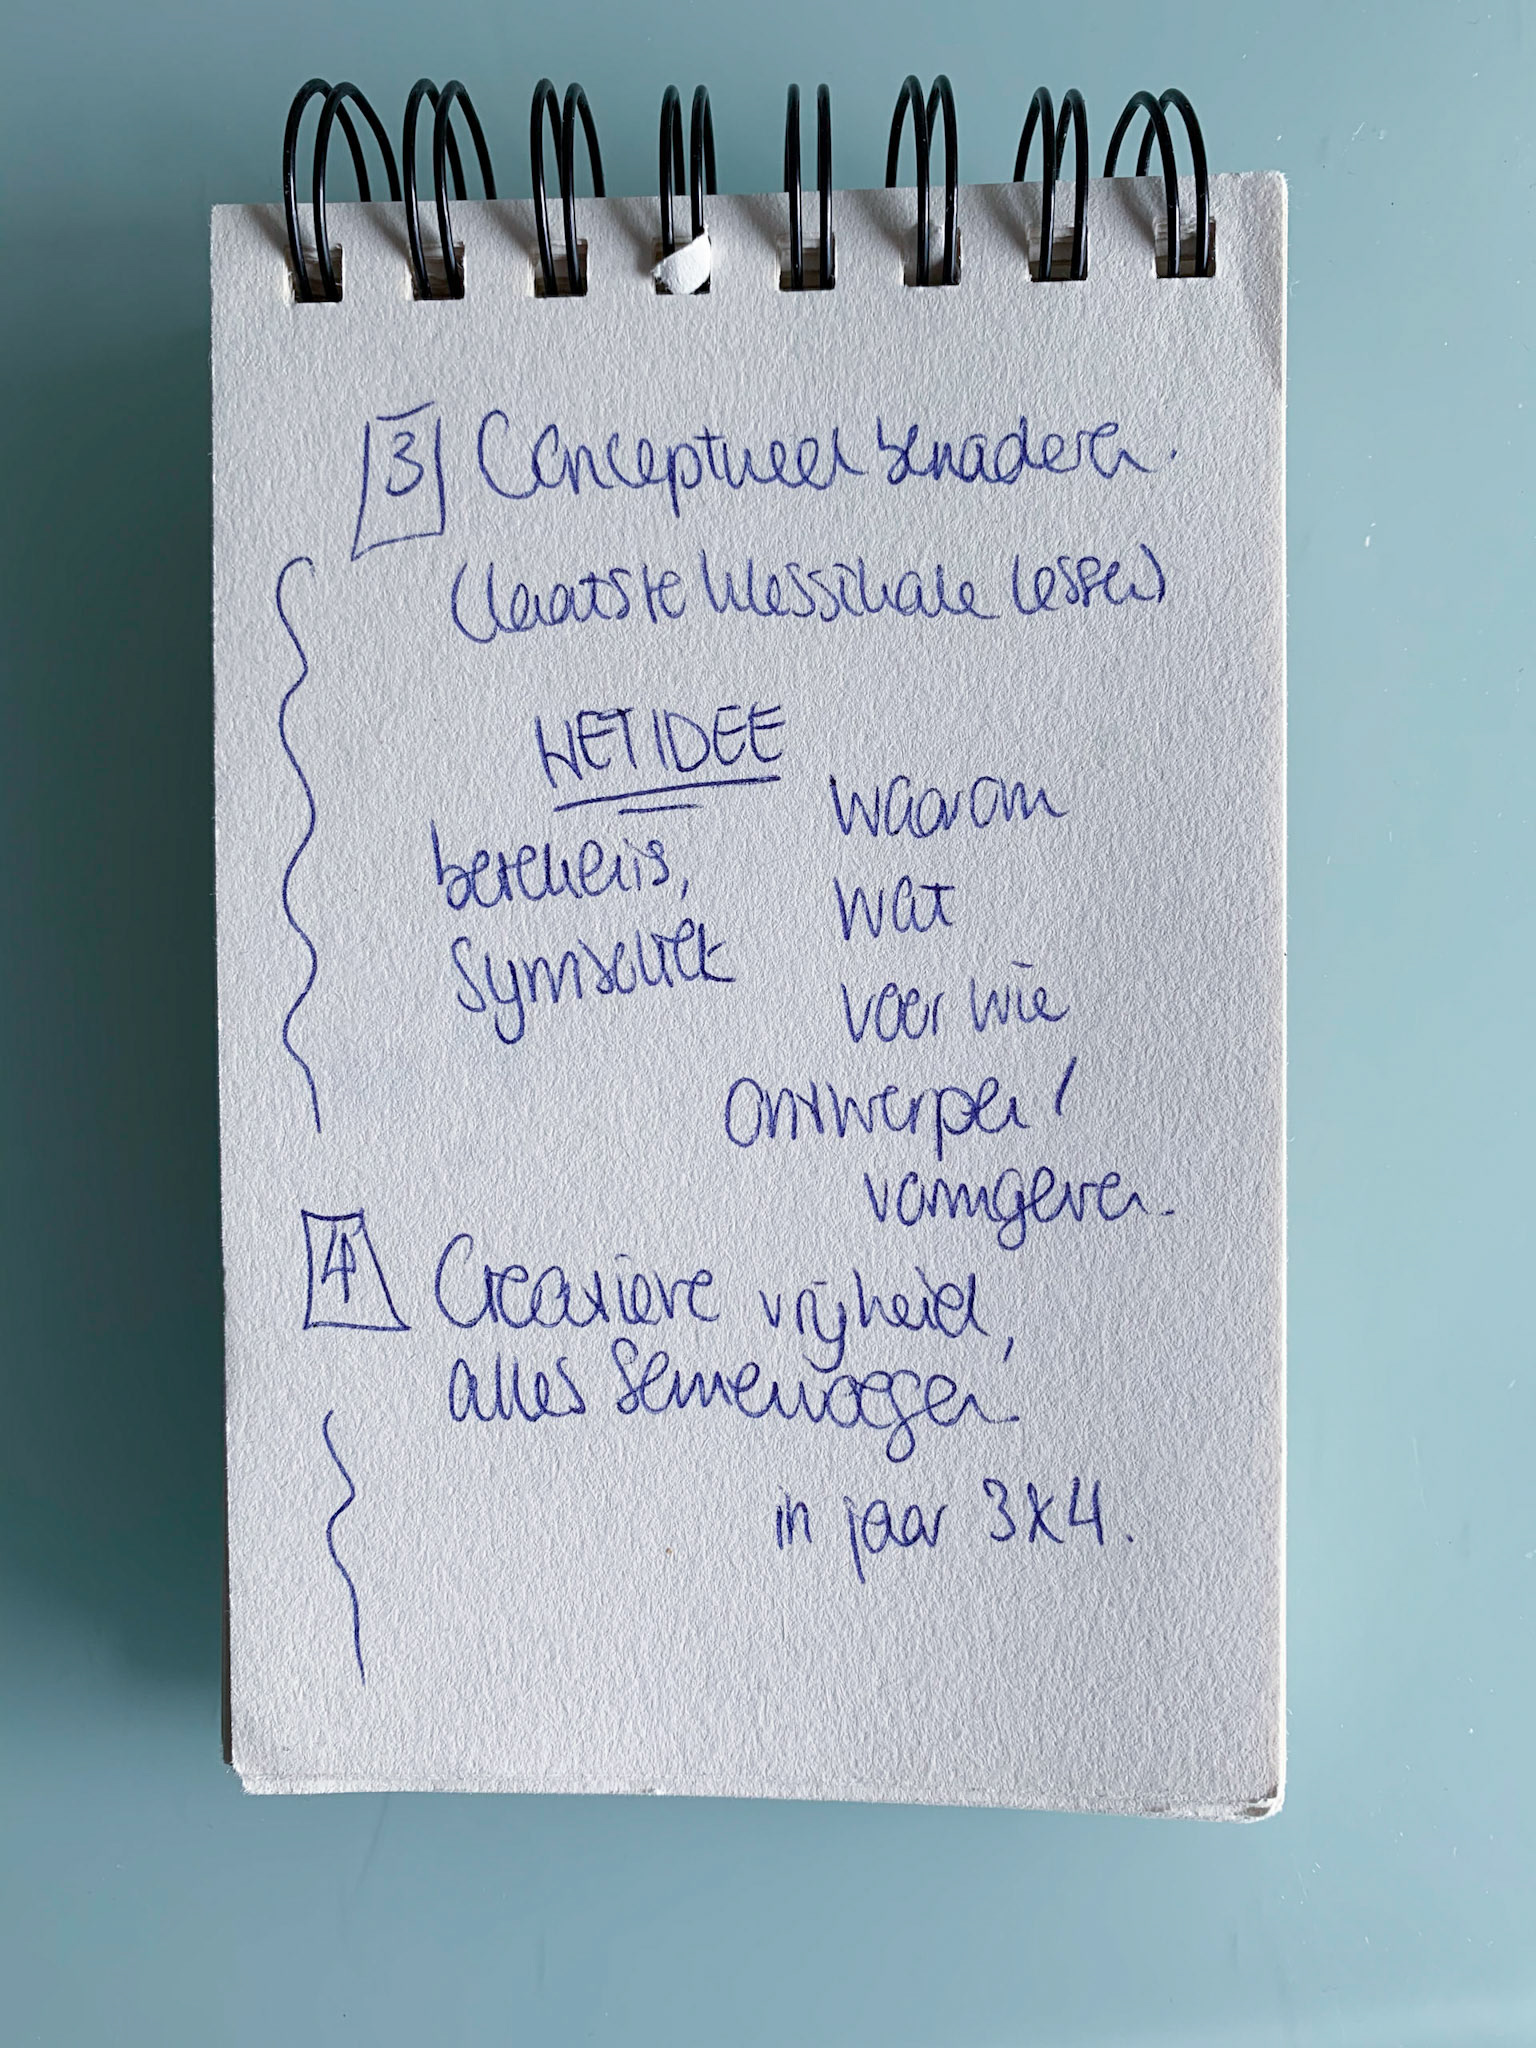 3 Conceptueel benaderen.
(laatste klassikale lessen)
HET IDEE
betekenis,
symboliek
waarom
wat
voor wie
ontwerpen /
vormgeven.
4 Creatieve vrijheid,
alles samenvoegen.
in jaar 3 & 4.